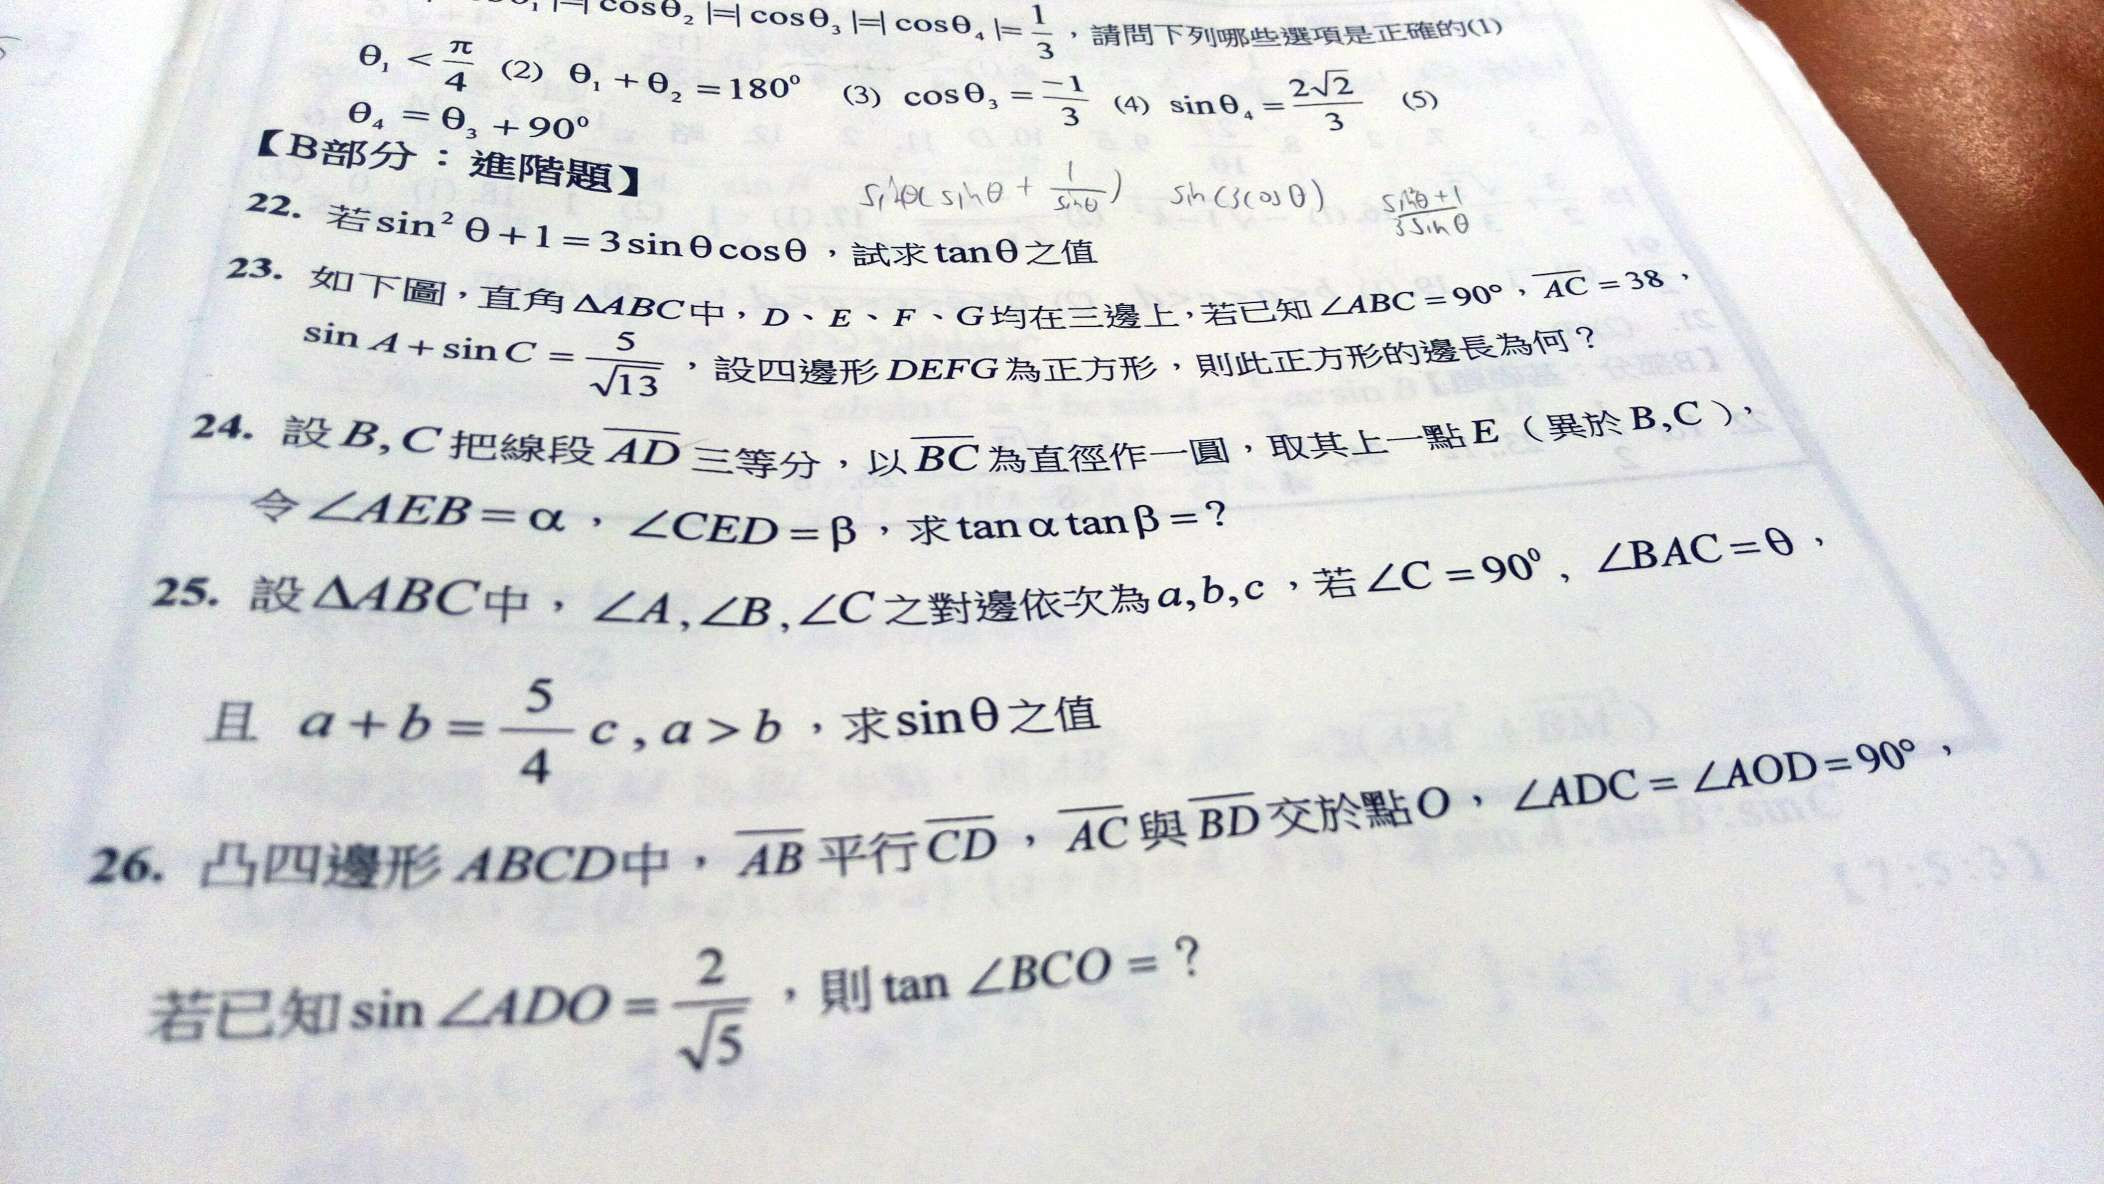 |=| cosθ₂ |=| cosθ₃ |=| cosθ₄ |= 1/3，請問下列哪些選項是正確的(1)
θ₁ < π/4 (2) θ₁ + θ₂ = 180° (3) cosθ₃ = -1/3 (4) sinθ₄ = 2√2/3 (5)
θ₄ = θ₃ + 90°
【B部分：進階題】
sinθ( sinθ + 1/sinθ ) sin(3cosθ) sin²θ+1/3sinθ
22. 若sin² θ+1=3sinθcosθ，試求tanθ之值
23. 如下圖，直角ΔABC中，D、E、F、G均在三邊上，若已知∠ABC=90°，AC=38，
sin A+sin C = 5/√13，設四邊形DEFG為正方形，則此正方形的邊長為何？
24. 設B,C把線段AD三等分，以BC為直徑作一圓，取其上一點E（異於B,C），
令∠AEB=α，∠CED=β，求tanαtanβ=?
25. 設ΔABC中，∠A,∠B,∠C之對邊依次為a,b,c，若∠C=90°，∠BAC=θ，
且 a+b= 5/4 c,a>b，求sinθ之值
26. 凸四邊形ABCD中，AB平行CD，AC與BD交於點O，∠ADC=∠AOD=90°，
若已知sin∠ADO= 2/√5，則tan∠BCO=？